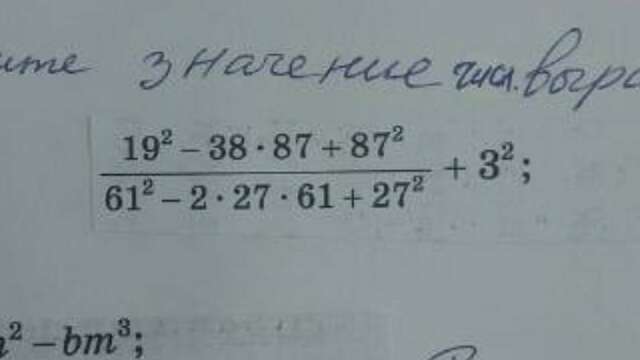 значение числ. выра
19² − 38 · 87 + 87²
61² − 2 · 27 · 61 + 27²
+ 3²;
² − bm³;